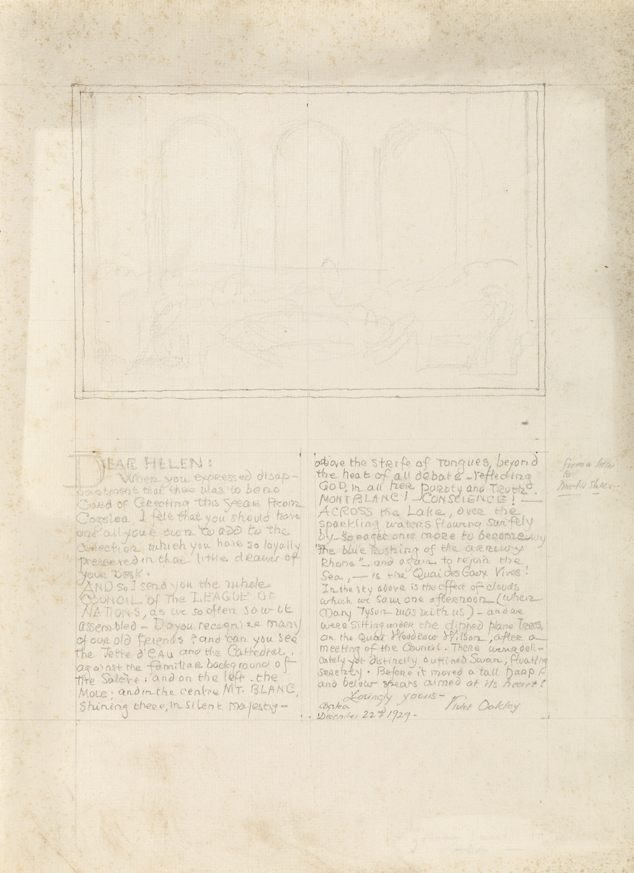 DEAR HELEN:
When you expressed disap-
pointment that there was to be no
Card of Greeting this year from
Cogslea, I felt that you should have
one all your own to add to the
collection which you have so loyally
preserved in that little drawer of
your Desk.
AND so I send you the whole
COUNCIL of THE LEAGUE OF
NATIONS, as we so often saw it
assembled – Do you recognize many
of our old friends? and can you see
the Jette d'Eau and the Cathedral,
against the familiar background of
the Salève, and on the left the
Mole; and in the centre MT. BLANC,
Shining there, in silent majesty –
above the strife of Tongues, beyond
the heat of all debate – reflecting
GOD, in all her Purity and Truth.
MONT BLANC! – CONSCIENCE! –
ACROSS the Lake, over the
sparkling waters flowing swiftly
by, so eager once more to become
"The blue rushing of the arrowy
Rhone" and again to rejoin the
Sea, – is the Quai des Eaux Vives!
In the sky above is the effect of clouds
which we saw one afternoon (when
Mary Tyson was with us) – and we
were sitting under the clipped plane trees
on the Quai Woodrow Wilson, after a
meeting of the Council. There was, deli-
cately yet distinctly outlined Swan, floating
serenely. Before it moved a tall harp
and below spears aimed at its heart!
Lovingly yours –
Violet Oakley
December 22nd 1929 –
From a letter
to